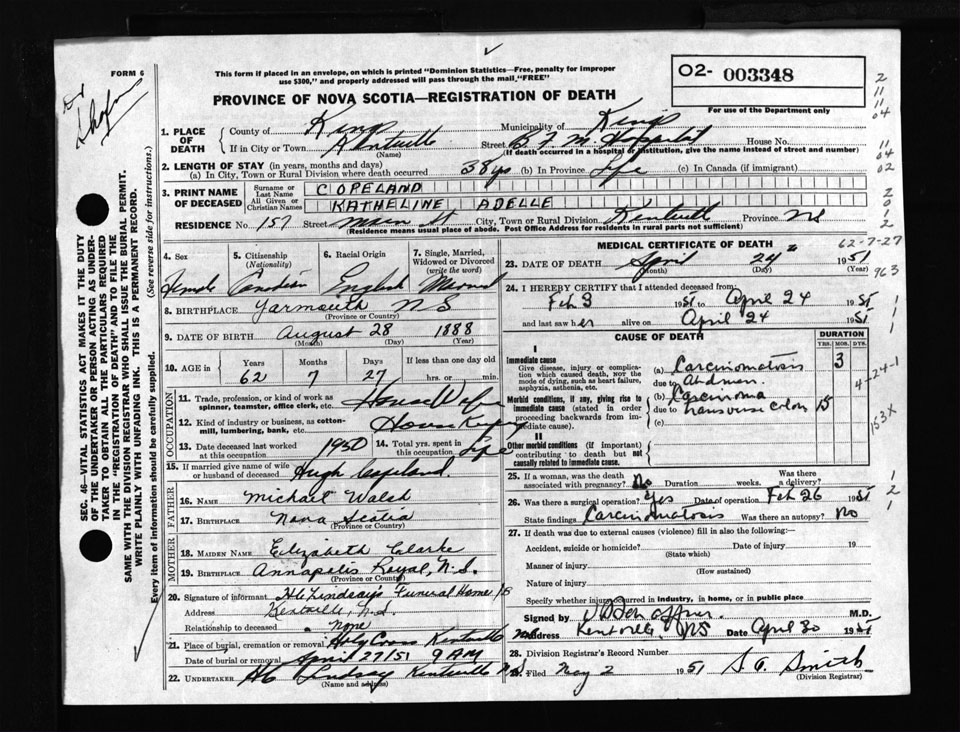 FORM 6
This form if placed in an envelope, on which is printed "Dominion Statistics—Free, penalty for improper
use $300," and properly addressed will pass through the mail, "FREE"
02- 003348
For use of the Department only
PROVINCE OF NOVA SCOTIA—REGISTRATION OF DEATH
SEC. 46—VITAL STATISTICS ACT MAKES IT THE DUTY
OF THE UNDERTAKER OR PERSON ACTING AS UNDER-
TAKER TO OBTAIN ALL THE PARTICULARS REQUIRED
IN THE "REGISTRATION OF DEATH" AND TO FILE THE
SAME WITH THE DIVISION REGISTRAR WHO SHALL ISSUE THE BURIAL PERMIT.
WRITE PLAINLY WITH UNFADING INK. THIS IS A PERMANENT RECORD.
Every item of information should be carefully supplied. (See reverse side for instructions.)
1. PLACE OF DEATH County of Kings Municipality of Kings
If in City or Town Kentville Street B.F.M. Hospital House No.
(Name) (If death occurred in a hospital or institution, give the name instead of street and number)
2. LENGTH OF STAY (in years, months and days)
(a) In City, Town or Rural Division where death occurred 38 yrs (b) In Province Life (c) In Canada (if immigrant)
3. PRINT NAME OF DECEASED Surname or Last Name COPELAND
All Given or Christian Names KATHELINE ADELLE
RESIDENCE No. 157 Street Main St. City, Town or Rural Division Kentville Province NS
(Residence means usual place of abode. Post Office Address for residents in rural parts not sufficient)
4. Sex 5. Citizenship (Nationality) 6. Racial Origin 7. Single, Married, Widowed or Divorced (write the word)
Female Canadian English Married
8. BIRTHPLACE Yarmouth N S
(Province or Country)
9. DATE OF BIRTH August 28 1888
(Month) (Day) (Year)
10. AGE in Years Months Days If less than one day old
62 7 27 hrs. or min.
OCCUPATION
11. Trade, profession, or kind of work as
spinner, teamster, office clerk, etc. House Wife
12. Kind of industry or business, as cotton-
mill, lumbering, bank, etc. House Keeping
13. Date deceased last worked at this occupation 1950 14. Total yrs. spent in this occupation Life
15. If married give name of wife
or husband of deceased Hugh Copeland
FATHER
16. Name Michael Walsh
17. BIRTHPLACE Nova Scotia
(Province or Country)
MOTHER
18. MAIDEN NAME Elizabeth Clarke
19. BIRTHPLACE Annapolis Royal, N.S.
(Province or Country)
20. Signature of informant H.C. Lindsay's Funeral Home
Address Kentville, N.S.
Relationship to deceased None
21. Place of burial, cremation or removal Holy Cross Kentville NS
Date of burial or removal April 27/51 9 AM
22. UNDERTAKER HC Lindsay Kentville N.S.
(Name and address)
MEDICAL CERTIFICATE OF DEATH
62-7-27
23. DATE OF DEATH April 24 1951
(Month) (Day) (Year)
24. I HEREBY CERTIFY that I attended deceased from:
Feb 3 1951 to April 24 1951
and last saw her alive on April 24 1951
CAUSE OF DEATH DURATION
YRS. MOS. DYS.
I
Immediate cause
Give disease, injury or complica-
tion which caused death, not the
mode of dying, such as heart failure,
asphyxia, asthenia, etc.
(a) Carcinomatosis 3
due to Abdomen
Morbid conditions, if any, giving rise to
immediate cause (stated in order
proceeding backwards from im-
mediate cause).
(b) Carcinoma
due to transverse colon 15
(c)
II
Other morbid conditions (if important)
contributing to death but not
causally related to immediate cause.
4-24-1
153X
25. If a woman, was the death
associated with pregnancy? No Duration weeks. Was there a delivery?
26. Was there a surgical operation? Yes Date of operation Feb 26 1951
State findings Carcinomatosis Was there an autopsy? No
27. If death was due to external causes (violence) fill in also the following:—
Accident, suicide or homicide? Date of injury 19
(State which)
Manner of injury
(How sustained)
Nature of injury
Specify whether injury occurred in industry, in home, or in public place
Signed by M.D.
Address Kentville, NS Date April 30 1951
28. Division Registrar's Record Number
29. Filed May 2 1951 Smith
(Division Registrar)